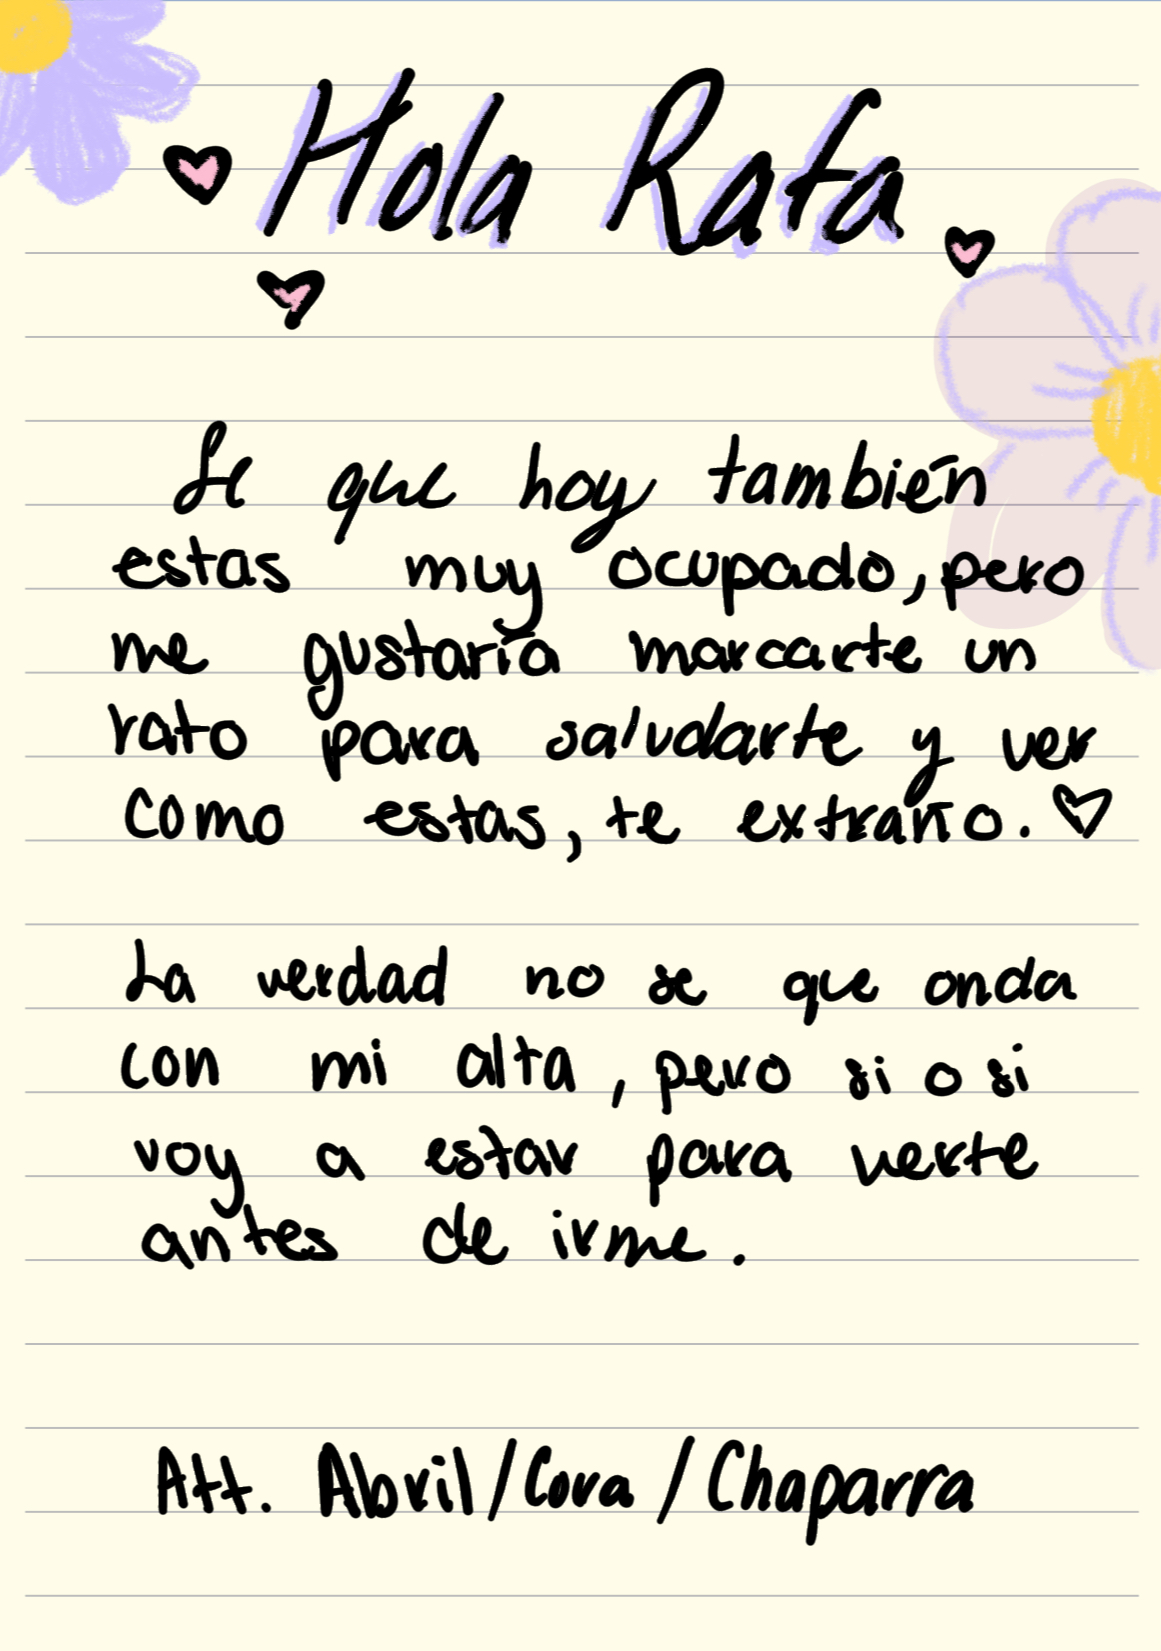 Hola Rafa
Se que hoy también
estas muy ocupado, pero
me gustaría marcarte un
rato para saludarte y ver
como estas, te extraño. ♡
La verdad no se que onda
con mi alta, pero si o si
voy a estar para verte
antes de irme.
Att. Abril/Cora/Chaparra